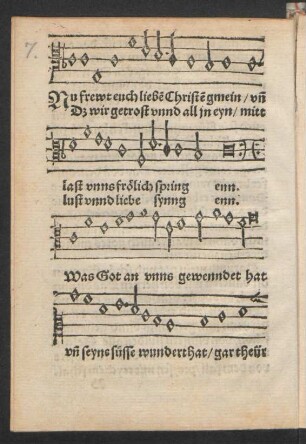 7.
Nu frewt euch liebẽ Christẽ gmein / vñ
Dz wir getrost vnnd all jn eyn / mitt
last vnns frölich spring enn.
lust vnnd liebe synng enn.
Was Got an vnns gewenndet hat
vñ seyne süsse wunderthat / gar theür